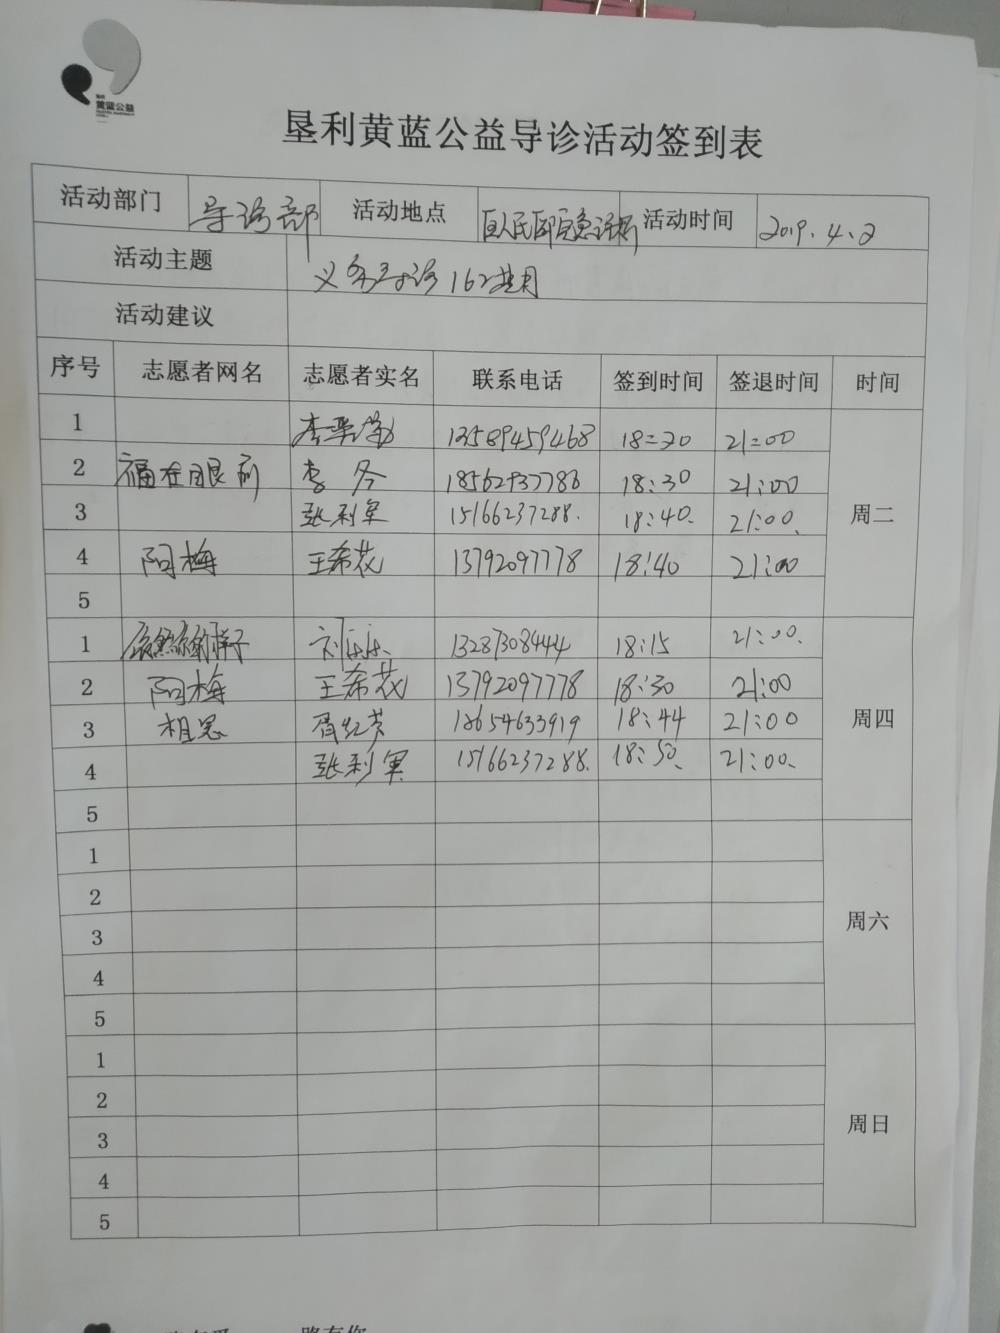 黄蓝公益
垦利黄蓝公益导诊活动签到表
活动部门 导诊部 活动地点 区人民医院急诊楼 活动时间 2019.4.2
活动主题 义务导诊162其月
活动建议
序号 志愿者网名 志愿者实名 联系电话 签到时间 签退时间 时间
1 李 13589459468 18:30 21:00
2 福在眼前 李冬 18562937786 18:30 21:00
3 张利军 15166237288. 18:40. 21:00.
周二
4 阿梅 王希花 13792097778 18:40 21:00
5
1 刘乐乐 13287308444 18:15 21:00.
2 阿梅 王希花 13792097778 18:30 21:00
3 相思 胥红芳 18654633919 18:44 21:00
周四
4 张利军 15166237288. 18:50. 21:00.
5
1
2
3
周六
4
5
1
2
3
周日
4
5